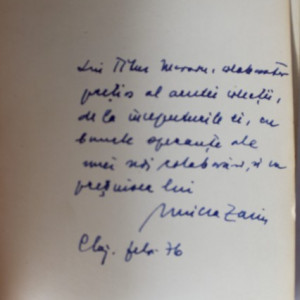 Lui Titus Moraru, colaborator
prețios al acestei colecții,
de la începuturile ei, cu
bunele speranțe ale
unei noi colaborări, și cu
prețuirea lui
Mircea Zaciu
Cluj. febr. 76